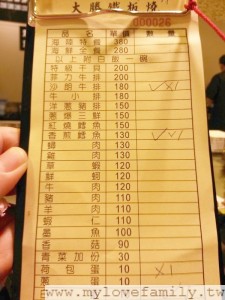 大勝鐵板燒
000026
品名 單價 數量
海陸特餐 380
海鮮全餐 280
以上附白飯一碗
特級干貝 200
菲力牛排 200
沙朗牛排 180
牛小排 180
洋蔥豬排 150
蔥爆三鮮 150
紅燒鱈魚 150
香煎鱈魚 130
鱔肉 130
雞肉 130
草蝦 120
鮮蚵 120
牛肉 110
豬肉 110
羊肉 110
蝦仁 110
墨魚 100
香菇 90
青菜加份 30
荷包蛋 10
蔥蛋 10
www.mylovefamily.tw